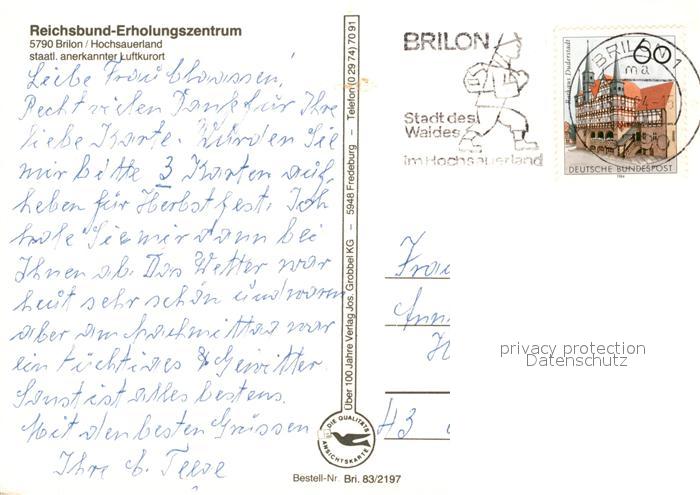 Reichsbund-Erholungszentrum
5790 Brilon / Hochsauerland
staatl. anerkannter Luftkurort
Liebe Frau
Recht vielen Dank für Ihre
liebe Karte. Würden Sie
mir bitte 3 Karten auf-
heben für Herbstfest. Ich
hole Sie mir dann bei
Ihnen ab. Das Wetter war
heut sehr schön und warm
aber am Nachmittag war
ein tüchtiges Gewitter.
Sonst ist alles bestens.
Mit den besten Grüssen
Ihre
Über 100 Jahre Verlag Jos. Grobbel KG – 5948 Fredeburg – Telefon (0 29 74) 70 91
DIE QUALITÄTS
ANSICHTSKARTE
Bestell-Nr. Bri. 83/2197
BRILON
Stadt des
Waldes
im Hochsauerland
BRILON 1
ma
60
Rathaus Duderstadt
DEUTSCHE BUNDESPOST
1984
Frau
Ann
H
43
privacy protection
Datenschutz